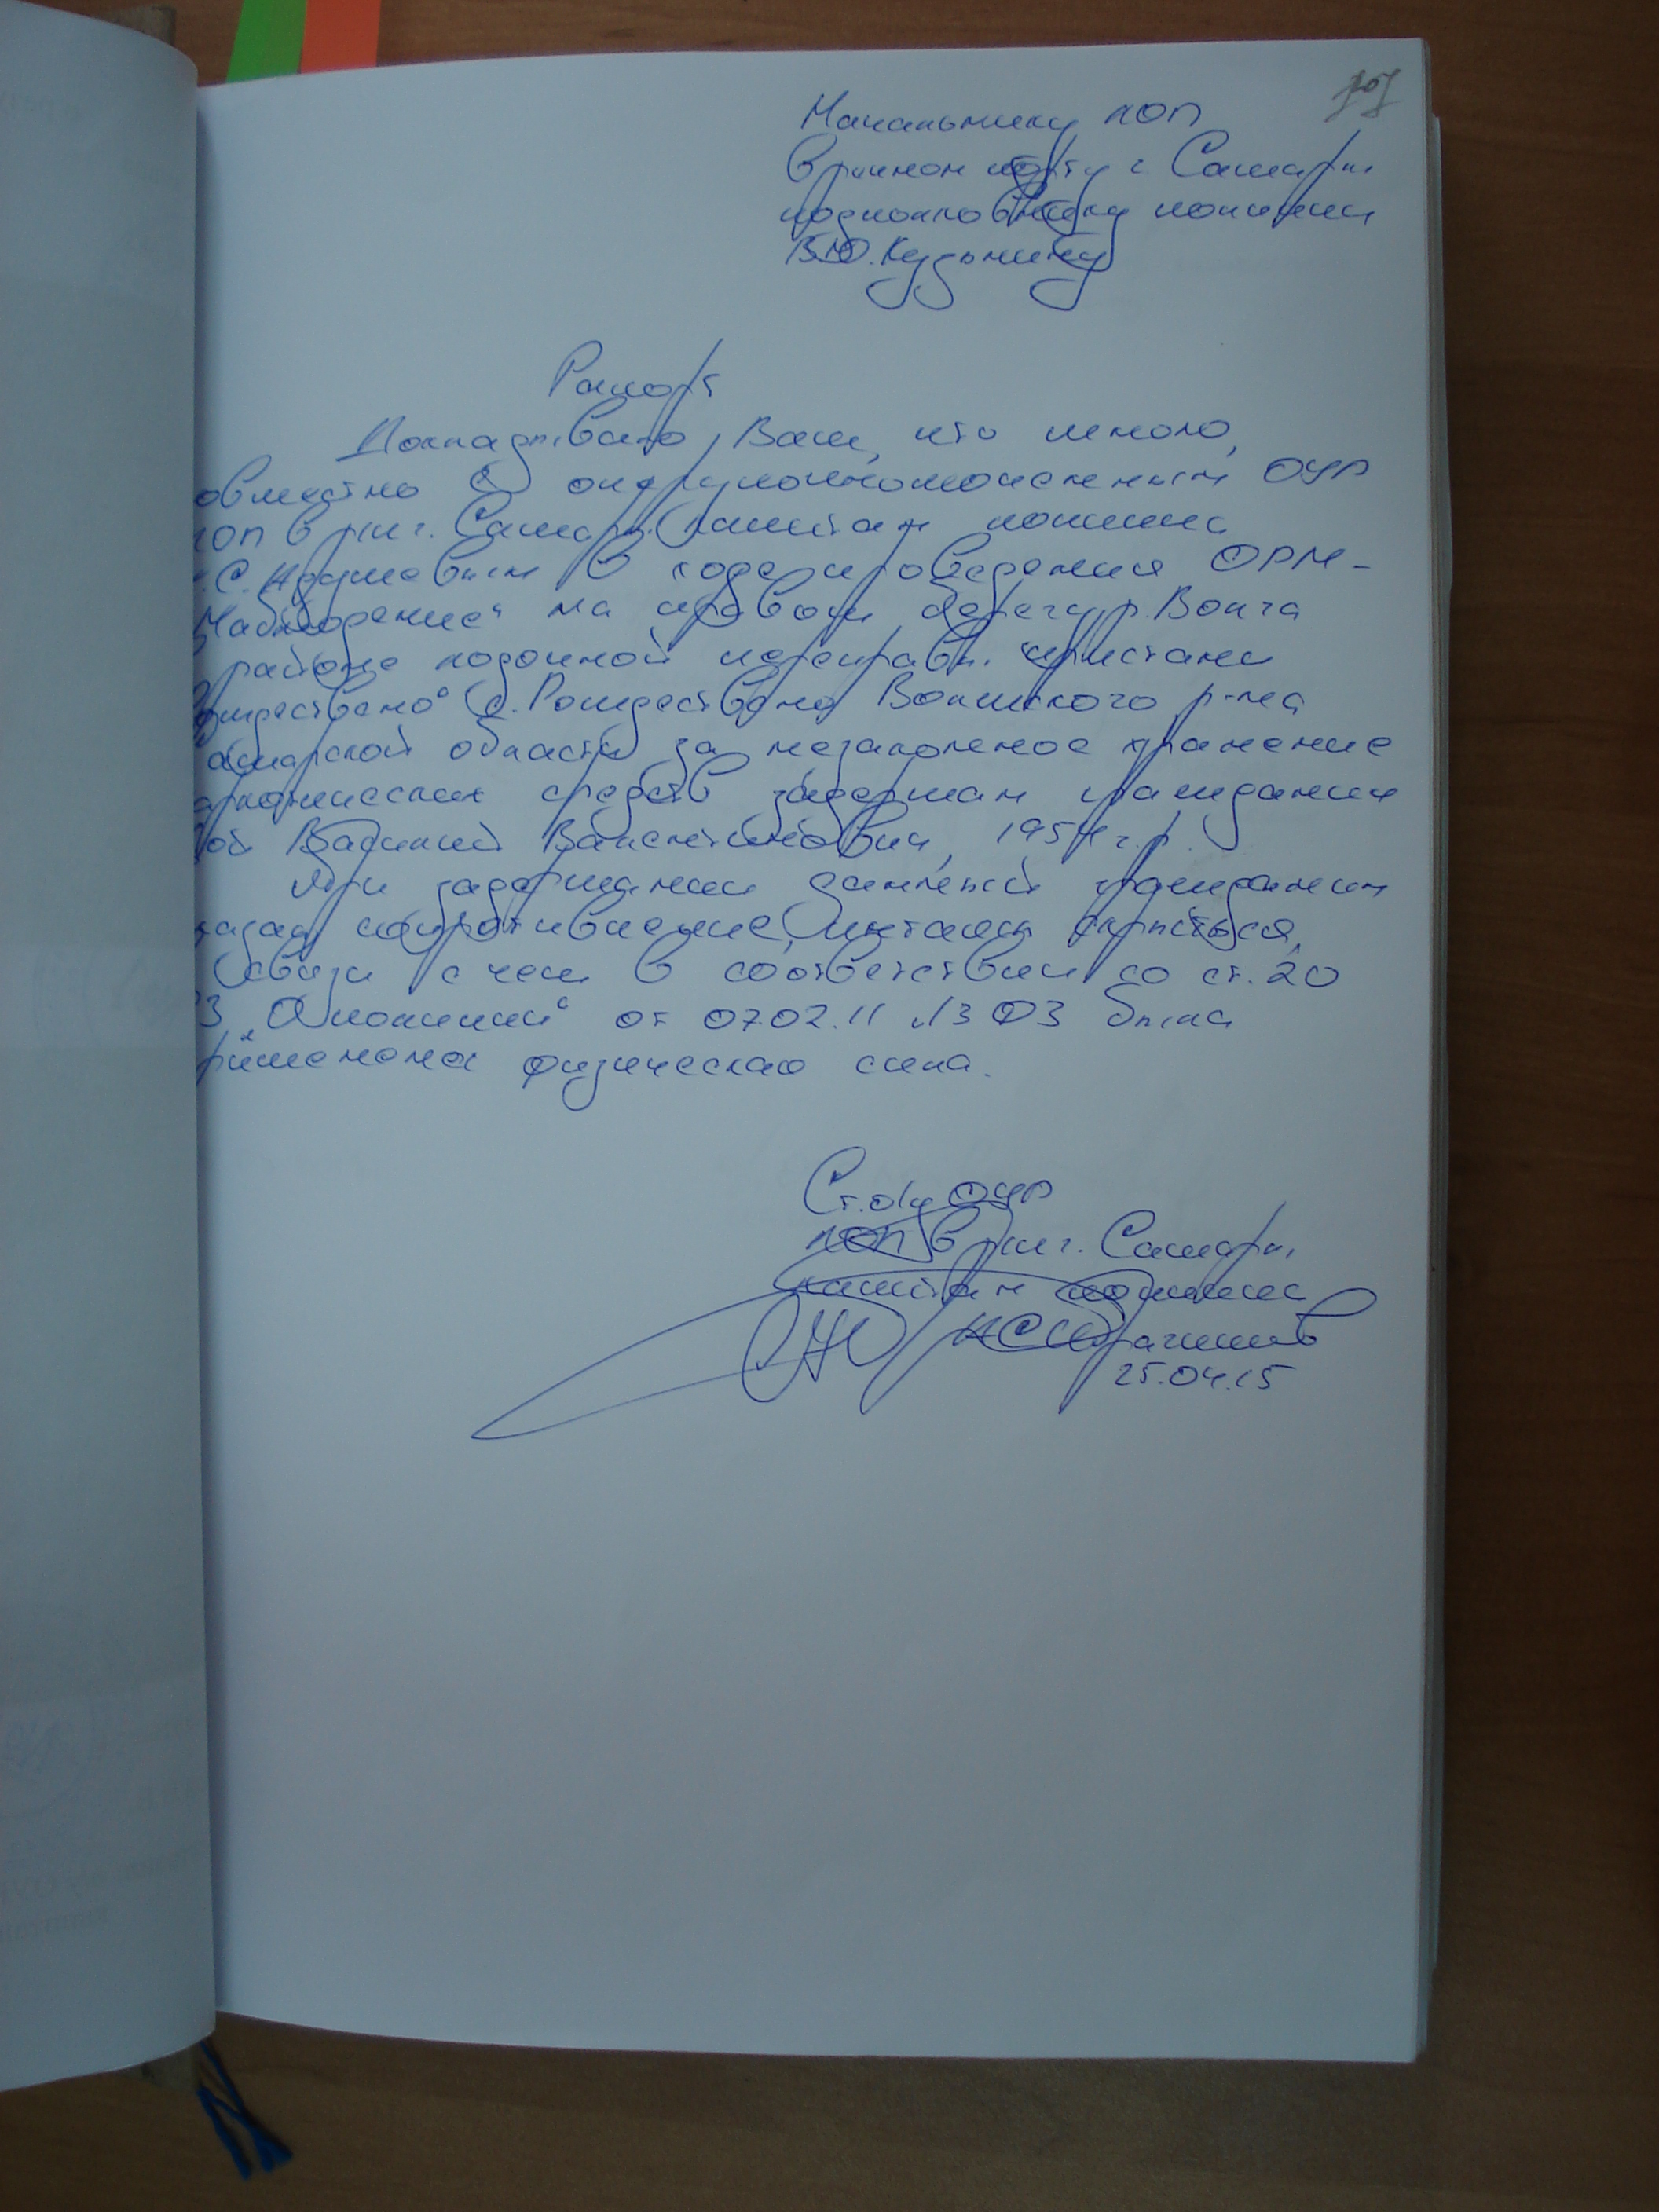 Начальнику ЛОП
в речном порту г. Самары
подполковнику полиции
В.Ю. Кудряшову
Рапорт
Докладываю Вам, что мною,
овместно с оперуполномоченным ОУР
ЛОП в рп г. Самары капитан полиции
.С. в ходе проведения ОРМ-
"Наблюдение" на правом берегу р. Волга
районе лодочной переправы "пристани
ождествено" с. Рождествено Волжского р-на
амарской области за незаконное хранение
аркотических средств задержан гражданин
ой Валентинович, 1954 г.р.
При задержании данный гражданин
казал сопротивление, пытался скрыться,
связи с чем в соответствии со ст. 20
З "О полиции" от 07.02.11 №3 ФЗ была
рименена физическая сила.
Ст. о/у ОУР
ЛОП в рп г. Самары
капитан полиции
25.04.15